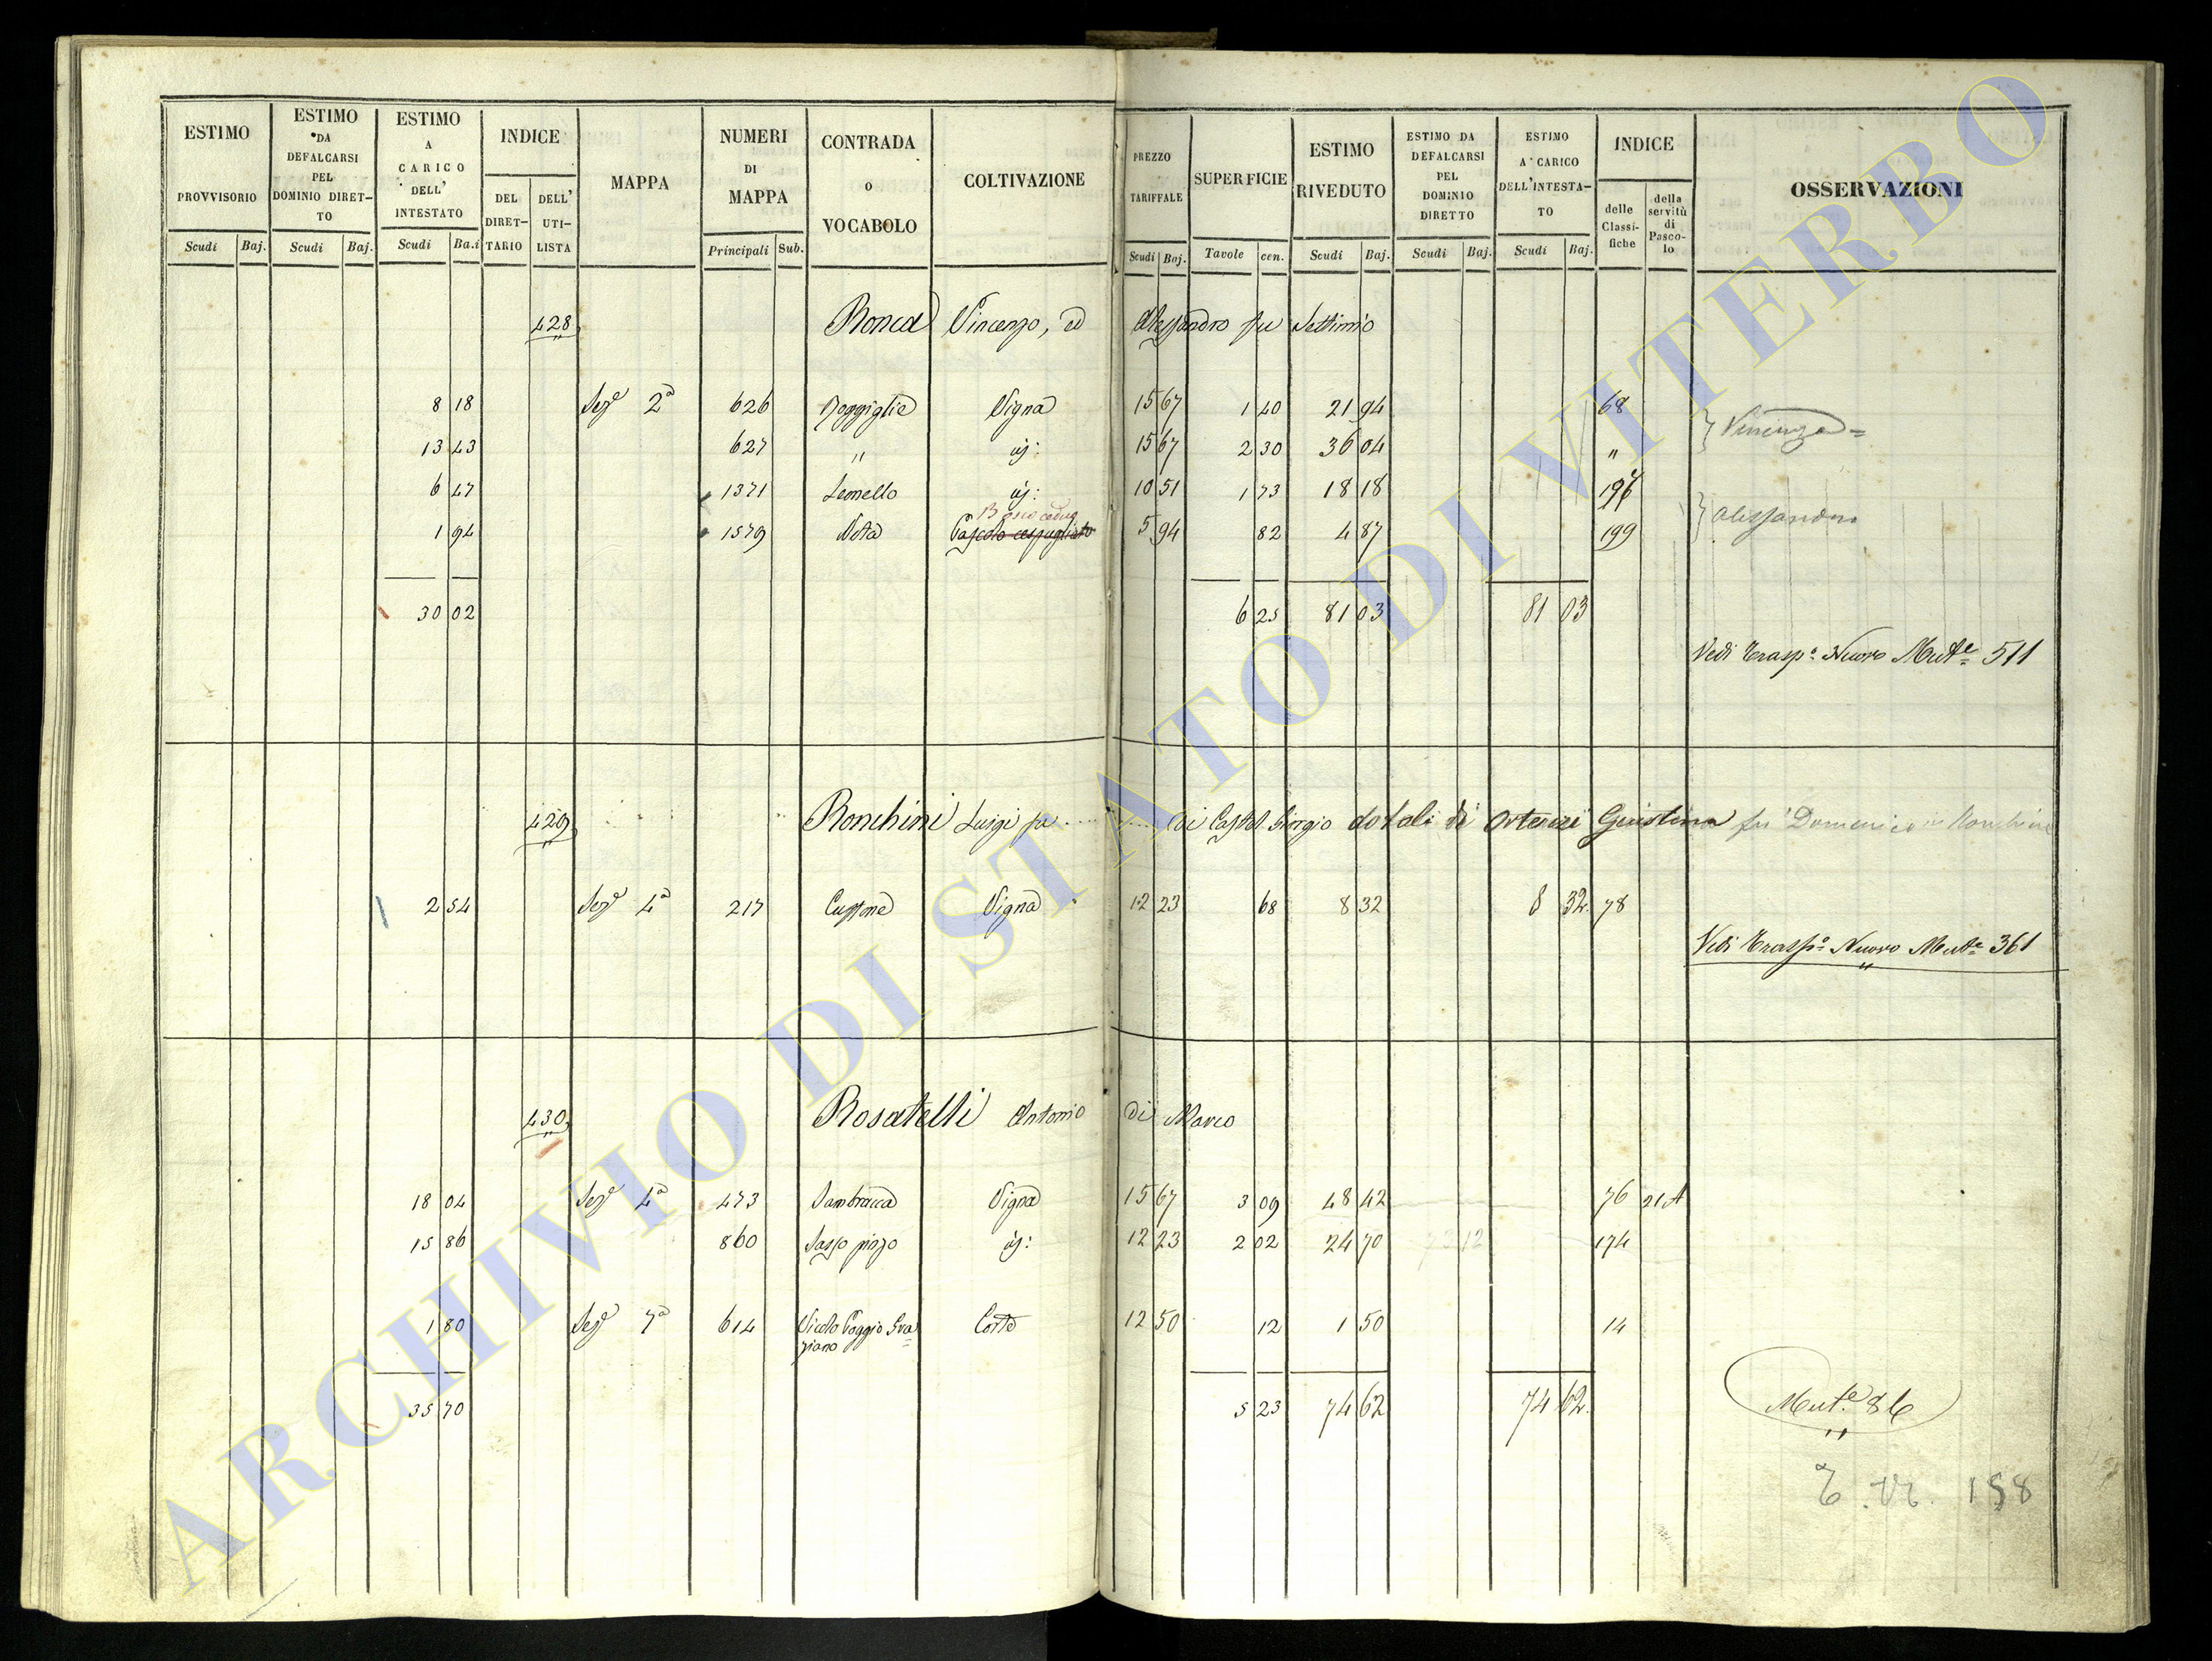 ESTIMO PROVVISORIO Scudi Baj.
ESTIMO DA DEFALCARSI PEL DOMINIO DIRET-TO Scudi Baj.
ESTIMO A CARICO DELL' INTESTATO Scudi Ba.i
INDICE DEL DIRET-TARIO DELL' UTI-LISTA
MAPPA
NUMERI DI MAPPA Principali Sub.
CONTRADA O VOCABOLO
COLTIVAZIONE
PREZZO TARIFFALE Scudi Baj.
SUPERFICIE Tavole cen.
ESTIMO RIVEDUTO Scudi Baj.
ESTIMO DA DEFALCARSI PEL DOMINIO DIRETTO Scudi Baj.
ESTIMO A CARICO DELL'INTESTA-TO Scudi Baj.
INDICE delle Classi-fiche della servitù di Pasco-lo
OSSERVAZIONI
428 Ronca Vincenzo, ed Alessandro fu Settimio
8 18 Sez.e 2a 626 Vigna 15 67 1 40 21 94 68
Vincenzo =
13 43 627 " id: 15 67 2 30 36 04 "
6 47 1371 id: 10 51 1 73 18 18
Bosco ceduo
1 94 1579 Pascolo cespugliato 5 94 82 4 87 199
Alessandro
30 02 6 25 81 03 81 03
Vedi Trasp.o Nuovo Mut.e 511
429 Ronchini Luigi fu ........ di Castel Giorgio dotali di Ortenzi Giustina fu Domenico in Ronchini
2 54 Sez.e 4a 217 Vigna 12 23 68 8 32 8 32. 78
Vedi Trasp.o Nuovo Mut.e 361
430 Rosatelli Antonio di Marco
18 04 Sez.e 4a 473 Sambracca Vigna 15 67 3 09 48 42 76 21A
15 86 860 Sasso pinzo id: 12 23 2 02 24 70 73 12 174
1 80 Sez.e 7a 614 Vicolo Poggio Gra=
ziano Corte 12 50 12 1 50 14
35 70 5 23 74 62 74 62.
Mut.e 86
T. N. 158
ARCHIVIO DI STATO DI VITERBO